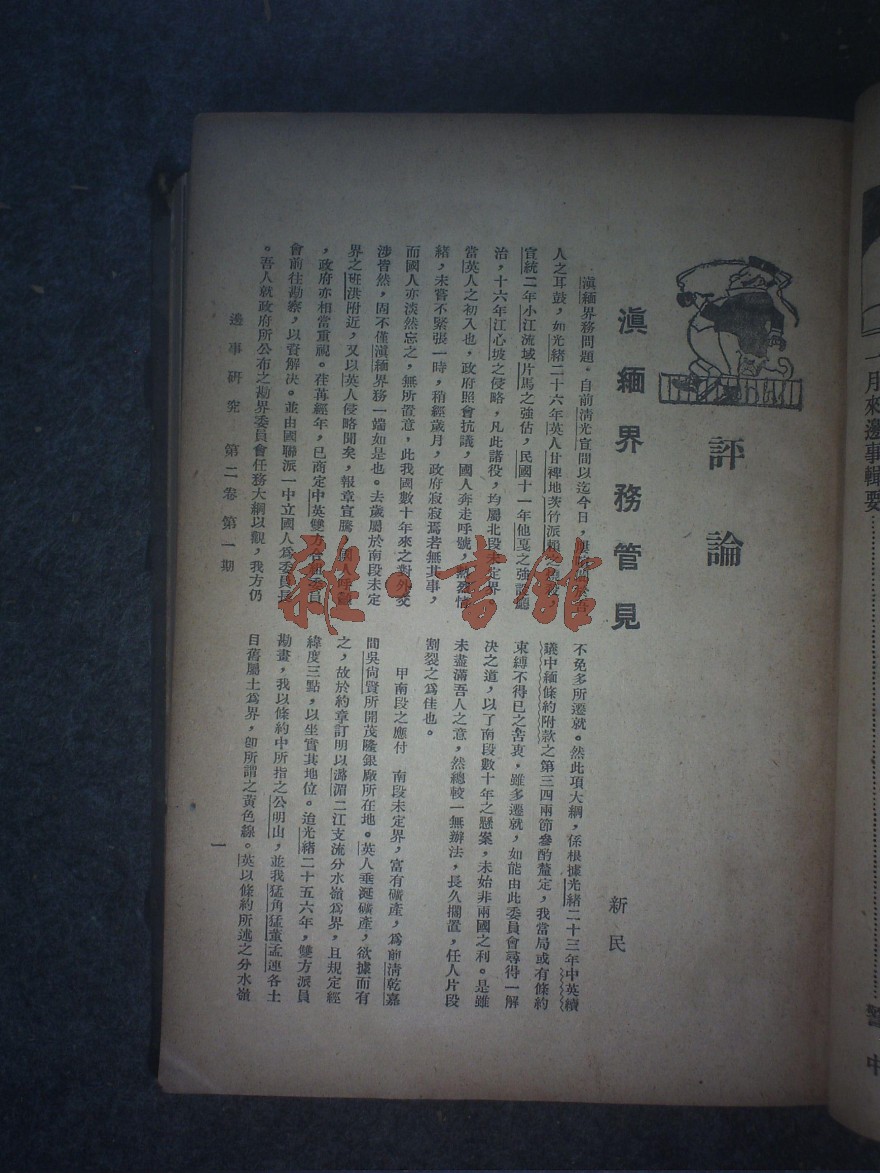 評論
滇緬界務管見
新民
滇緬界務問題。自前清光宣間以迄今日,
人之耳鼓,如光緒二十六年英人甘稗地茨竹派賴之
宣統二年小江流域片馬之強佔,民國十一年他戛之強設廳
治,十六年江心坡之侵略,凡此諸役,均屬北段未定界
當英人之初入也,政府照會抗議,國人奔走呼號,熱烈情
緒,未嘗不緊張一時,稍經歲月,政府寂寂焉若無其事,
而國人亦淡然忘之,無所置意,此我國數十年來之對外交
涉皆然,固不僅滇緬界務一端如是也。去歲屬於南段未定
界之班洪附近,又以英人侵略聞矣,報章宣騰,國人呼籲
,政府亦相當重視。荏苒經年,已商定中英雙方合組委員
會前往勘察,以資解決。並由國聯派一中立國人為委員長
。吾人就政府所公布之勘界委員會任務大綱以觀,我方仍
不免多所遷就。然此項大綱,係根據光緒二十三年中英續
議中緬條約附款之第三四兩節參酌釐定,我當局或有條約
束縛不得已之苦衷,雖多遷就,如能由此委員會尋得一解
決之道,以了南段數十年之懸案,未始非兩國之利。是雖
未盡滿吾人之意,然總較一無辦法,長久擱置,任人片段
割裂之為佳也。
甲南段之應付 南段未定界,富有礦產,為前清乾嘉
間吳尚賢所開茂隆銀廠所在地。英人垂涎礦產,欲據而有
之,故於約章訂明以潞湄二江支流分水嶺為界,且規定經
緯度三點,以坐實其地位。迨光緒二十五六年,雙方派員
勘畫,我以條約中所指之公明山,並我猛角猛董孟連各土
目舊屬土為界,卽所謂之黃色線。英以條約所述之分水嶺
邊事研究 第二卷第一期
一
一月來邊事輯要
警中
雜·書館